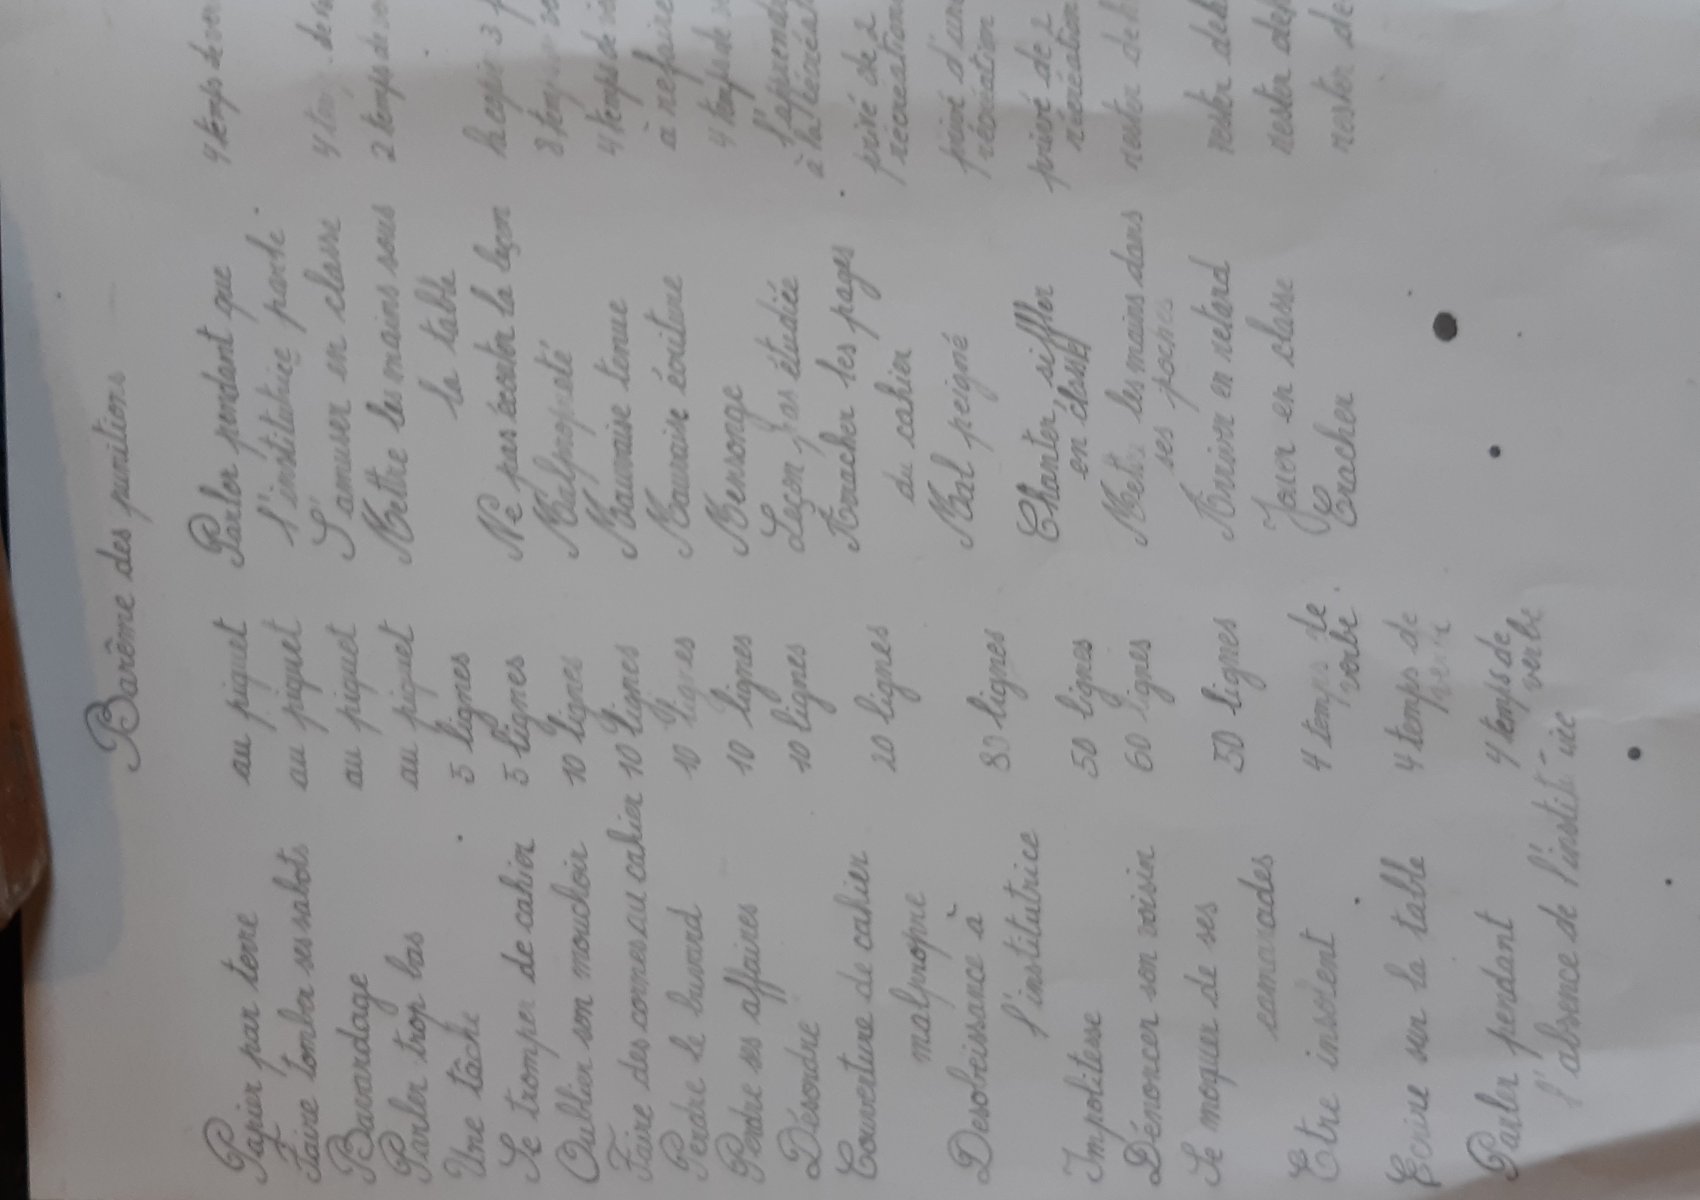 Barême des punitions
Papier par terre au piquet
Faire tomber ses sabots au piquet
Bavardage au piquet
Parler trop bas au piquet
Une tâche 5 lignes
Se tromper de cahier 5 lignes
Oublier son mouchoir 10 lignes
Faire des cornes au cahier 10 lignes
Perdre le buvard 10 lignes
Perdre ses affaires 10 lignes
Désordre 10 lignes
Couverture de cahier 20 lignes
malpropre
Desobeissance à 80 lignes
l'institutrice
Impolitesse 50 lignes
Dénoncer son voisin 60 lignes
Se moquer de ses 50 lignes
camarades
Etre insolent 4 temps de
verbe
Ecrire sur la table 4 temps de
Parler pendant 4 temps de
verbe
l'absence de l'institutrice
Parler pendant que 4 temps de
l'institutrice parle
S'amuser en classe 4 de
Mettre les mains sous 2 temps de
la table
Ne pas écouter la leçon 3
Malpropreté 8
Mauvaise tenue 4 temps de
Mauvaise écriture à refaire
Mensonge 4 temps de
Leçon pas étudiée
à la
Arracher les pages privé de 2
du cahier récréations
Mal peigné privé d'une
récréation
Chanter siffler privé de 2
en classe récréation
Mettre les mains dans rester
ses poches
Arriver en retard rester
Jouer en classe rester
Cracher rester